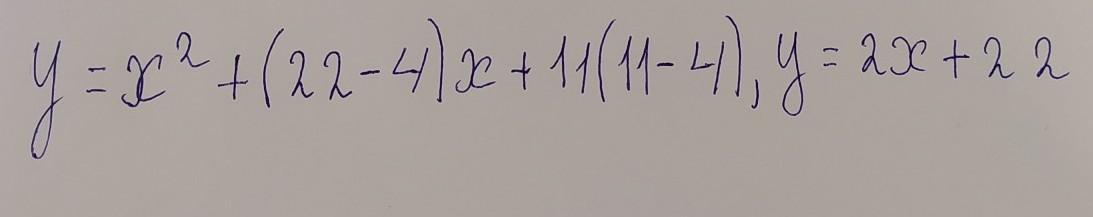 y = x² + (22 - 4)x + 11(11 - 4), y = 2x + 22